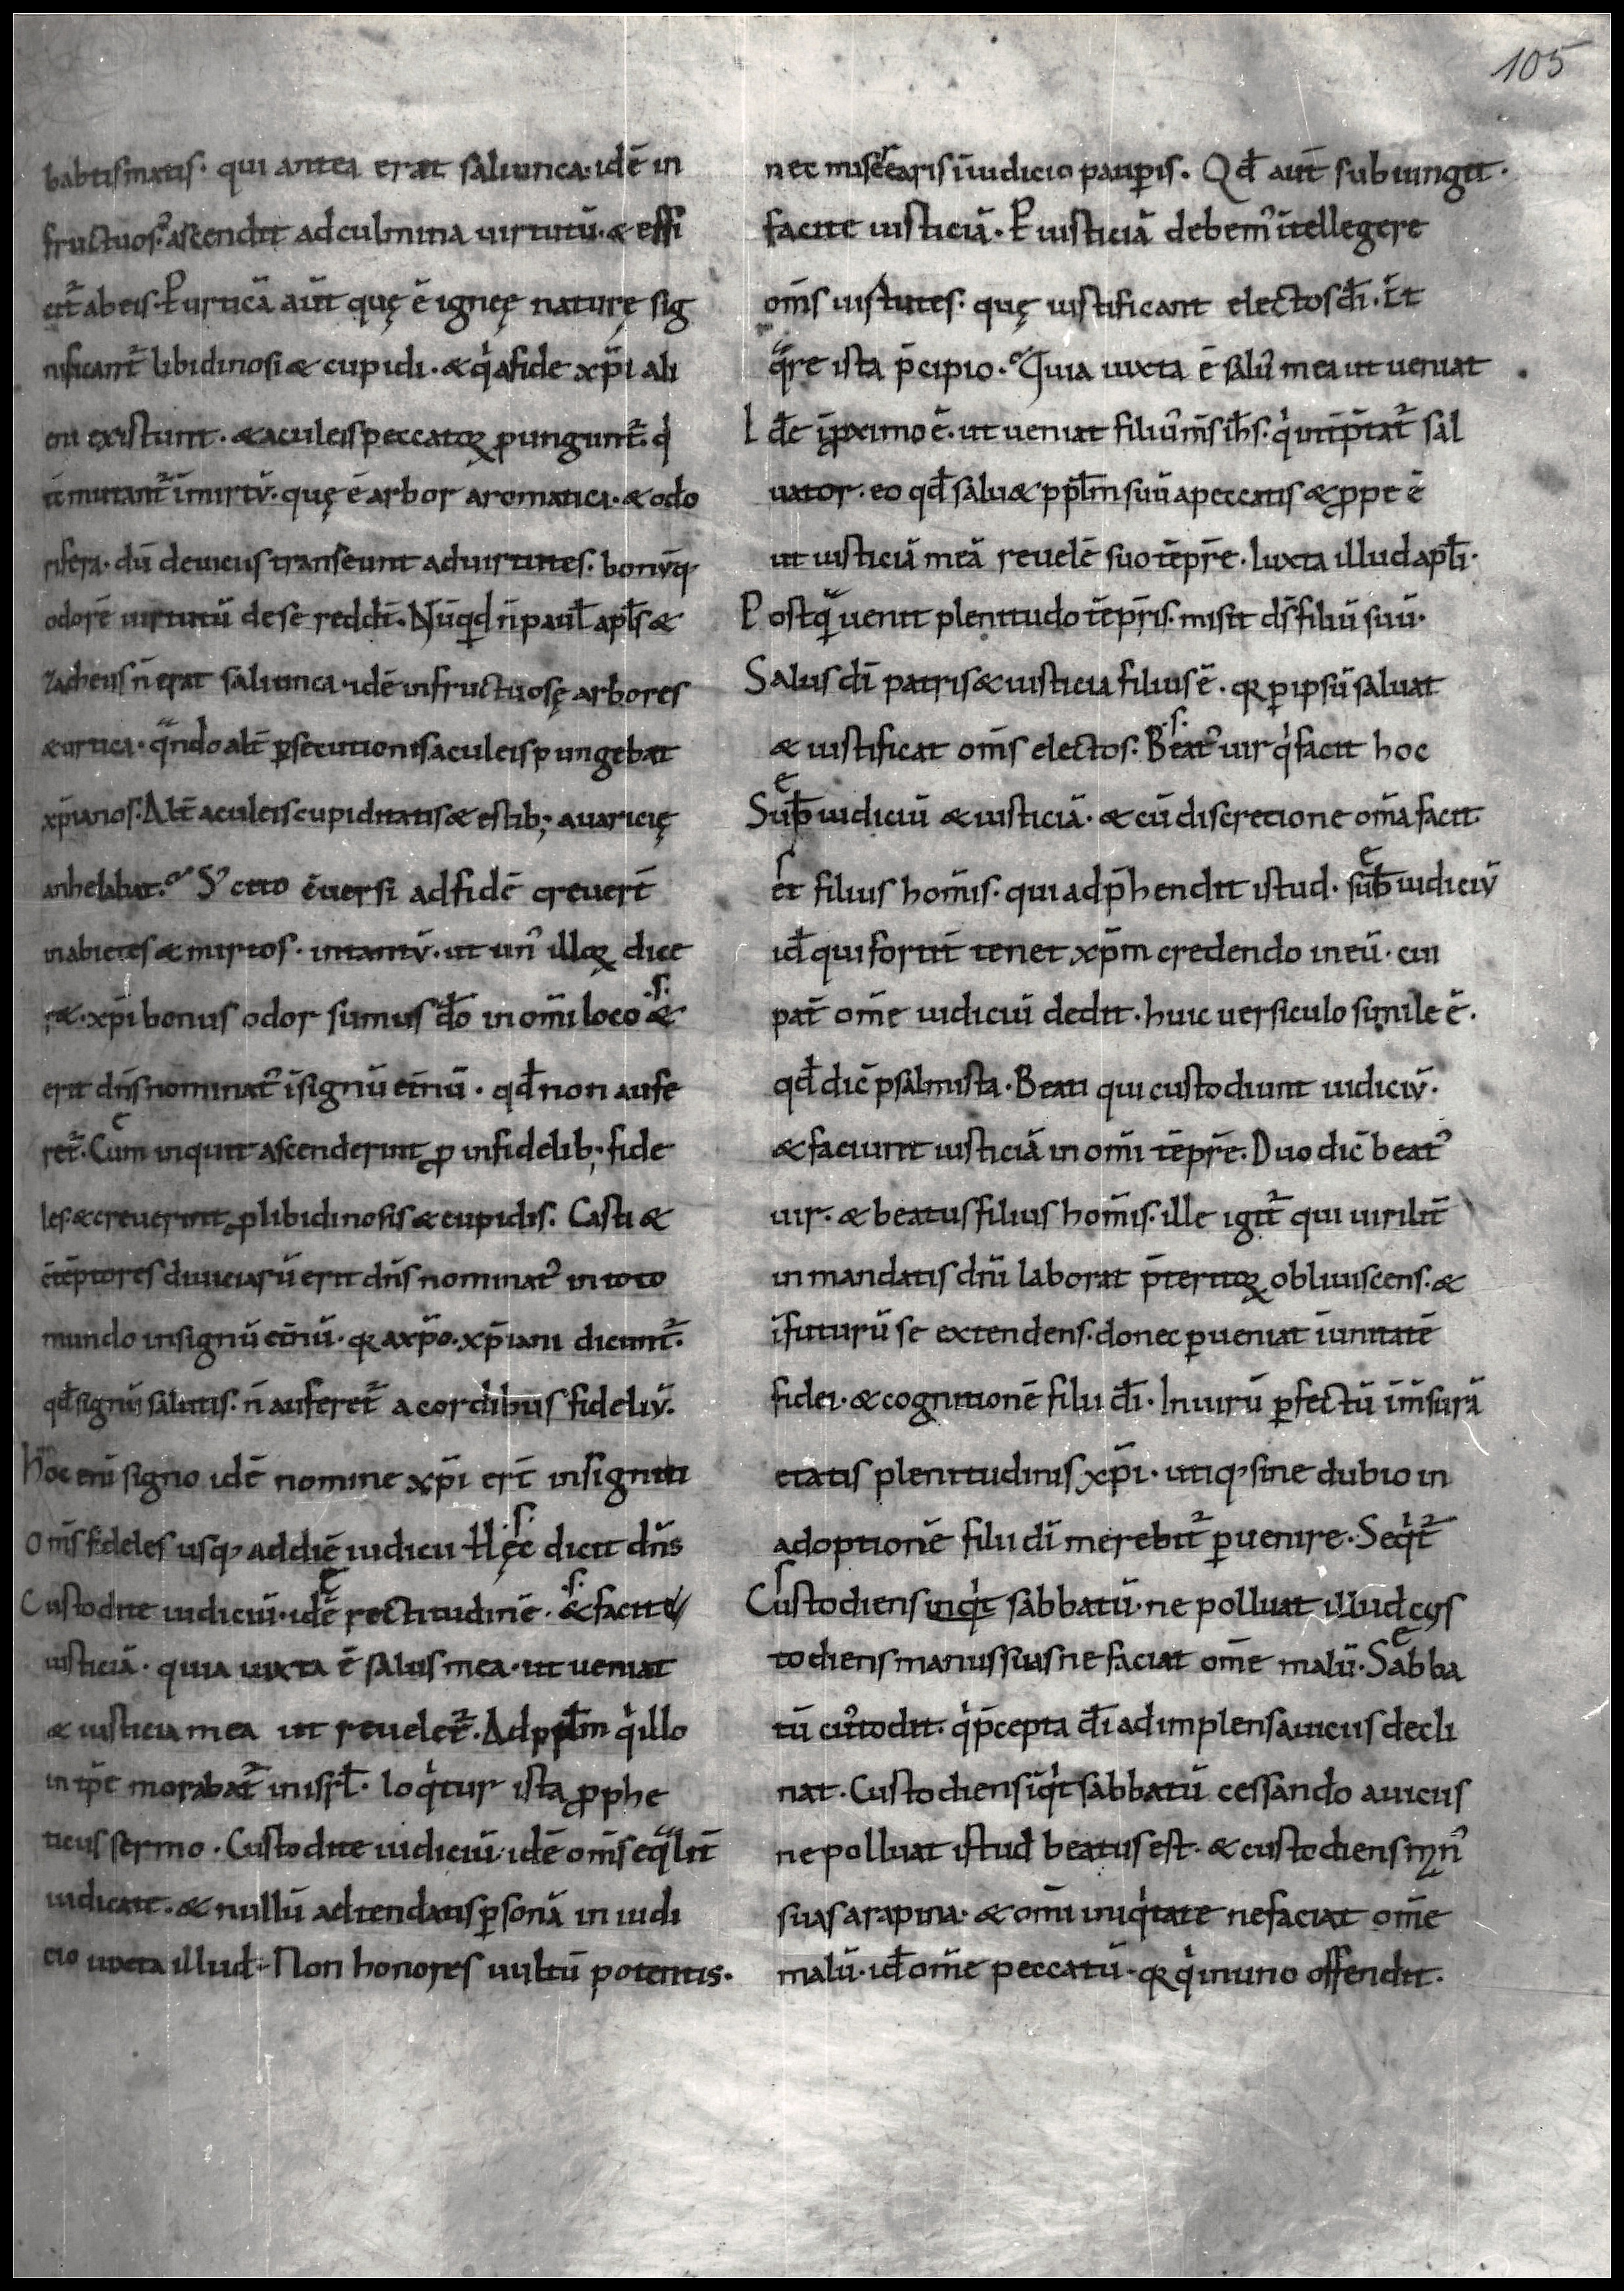 105
babtismatis· qui antea erat saliunca· idē in
fructuos᾿ ascendit ad culmina uirtutū· & effi
cit᷑ ab eis· P̱ urticā aūt quę ē igneę naturę sig
nificant᷑ libidinosi & cupidi· & qͥ a fide xp̄i ali
eni existunt· & aculeis peccatoꝝ pungunt᷑· qͥ
mutant᷑ ī mirtū· quę ē arbor aromatica· & odo
rifera· dū de uiciis transeunt ad uirtutes· bonūq·
odorē uirtutū de se reddt̄· Nūqͥd n̄ paul̄ apl̄s &
zacheus n̄ erat saliunca· idē infructuosę arbores
& urtica· qᷓndo alt̄ ꝑsecutionis aculeis pungebat
xp̄ianos· Alt̄ aculeis cupiditatis & estib; auaricię
anhelabat· S᾿ cito ūersi ad fidē creuert̄
in abietes & mirtos· in tantū· ut un᾿ illoꝝ dice
r&· xp̄i bonus odor sumus dō in om̄i loco &
erit dn̄s nominat᾿ ī signū et̄nū· qd̄ non aufe
ret᷑· Cum inquit ascenderint ꝓ infidelib; fide
les· & creuerint ꝓ libidinosis & cupidis· Casti &
ctēptores diuiciarū erit dn̄s nominat᾿ in toto
mundo in signū et̄nū· qꝛ a xp̄o· xp̄iani dicunt᷑·
qd̄ signū salutis· n̄ auferet᷑ a cordibus fideliū·
Hoc eni signo idē nomine xp̄i ert̄ insigniti
Om̄s fideles usq᾿ ad diē iudicii Hęc dicit dn̄s
Custodite iudiciū· idē rectitudinē· & facite
iusticiā· quia iuxta ē salus mea· ut ueniat
& iusticia mea ut reuelet᷑· Ad ppl̄m qͥ illo
in tp̄e morabat᷑ in isrl̄· loqͥtur ista ꝓphe
ticus sermo· Custodite iudiciū· idē om̄s eqᷓlit̄
iudicate· & nullū adtendatis ꝑsonā in iudi
cio iuxta illud· Non honores uultū potentis·
nec misearis ī iudicio pauꝑis· Qd̄ aūt subiungit·
facite iusticiā· P̱ iusticiā debem᾿ ītellegere
om̄s uistutes· quę iustificant electos dī· Et
qᷓre ista p̄cipio· Quia iuxta ē salus mea ut ueniat
I dē ī ꝓximo ē· ut ueniat filiu᾿ m̄s ih̄s· qͥ int̄p̄tat᷑ sal
uator· eo qd̄ salu& ppl̄m suū a peccatis & ꝓpe ē
ut iusticiā meā reuelē suo tēpr̄e· Iuxta illud apl̄i·
Postqᷓ uenit plenitudo tēpr̄is· misit ds̄ filiū suū·
Salus dī patris & iusticia filius ē· qꝛ ꝑ ipsū saluat
& iustificat om̄s electos· Beat᾿ uir qͥ facit hoc
Sub iudiciū & iusticiā· & cū discretione om̄a facit·
et filius hom̄is· qui adp̄hendit istud· sub iudiciū
id̄ qui fortit̄ tenet xp̄m credendo in eū· cui
pat̄ om̄e iudiciū dedit· huic uersiculo simile ē·
qd̄ dic̄ psalmista· Beati qui custodiunt iudiciū·
& faciunt iusticiā in om̄i tēpr̄e· Duo dic̄ beat᾿
uir· & beatus filius hom̄is· ille igit᷑ qui uirilit̄
in mandatis dn̄i laborat p̄teritoꝝ obliuiscens· &
ī futurū se extendens· donec ꝑueniat ī unitatē
fidei· & cognitionē filii dī· In uirū ꝑfectū ī m̄surā
etatis plenitudinis xp̄i· utiq᾿ sine dubio in
adoptionē filii dī merebit᷑ ꝑuenire· Seqͥt᷑
Custodiens inqͥt sabbatū· ne polluat illud cus
todiens manus suas ne faciat om̄e malū· Sabba
tū cu᾿todit· qͥ p̄cepta dī adimplens a uiciis decli
nat· Custodiens īqͥt sabbatū cessando a uiciis
ne polluat istud beatus est· & custodiens man᾿
suas a rapina· & om̄i iniqͥtate ne faciat om̄e
malū· id̄ om̄e peccatū· qꝛ qͥ in uno offendit·